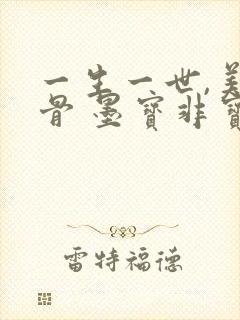 一生一世,美
骨 墨宝非宝
雷特福德